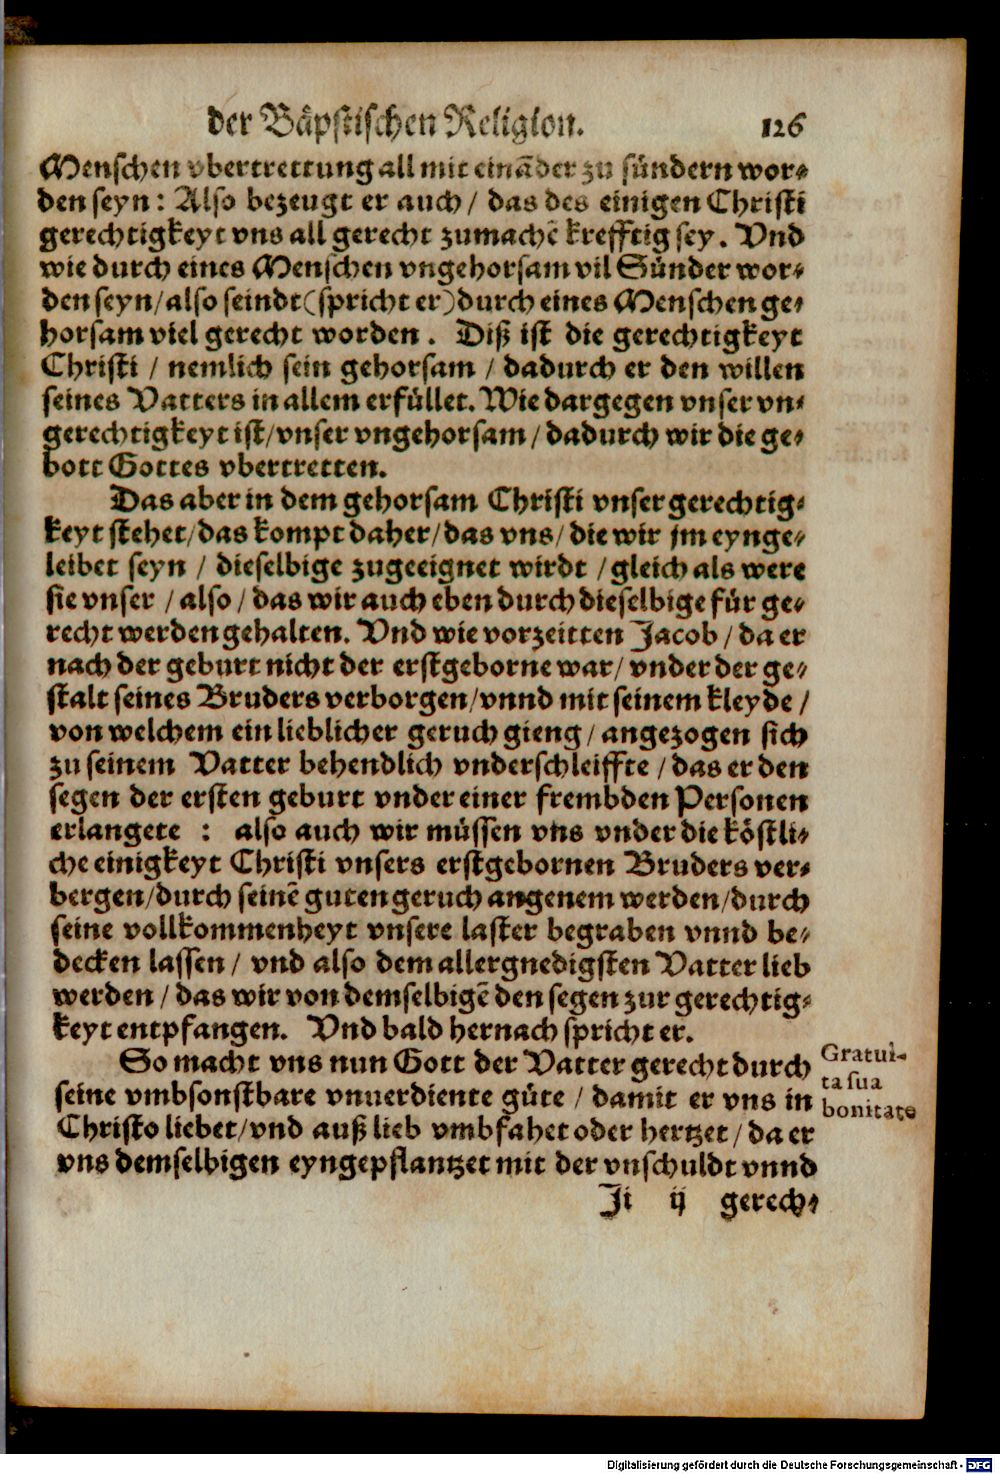 der Bäpstischen Religion. 126
Menschen vbertrettung all mit einãder zu sündern wor⸗
den seyn: Also bezeugt er auch/ das des einigen Christi
gerechtigkeyt vns all gerecht zumachẽ krefftig sey. Vnd
wie durch eines Menschen vngehorsam vil Sünder wor⸗
den seyn/also seindt(spricht er)durch eines Menschen ge⸗
horsam viel gerecht worden. Diß ist die gerechtigkeyt
Christi / nemlich sein gehorsam / dadurch er den willen
seines Vatters in allem erfüllet. Wie dargegen vnser vn⸗
gerechtigkeyt ist/vnser vngehorsam/dadurch wir die ge⸗
bott Gottes vbertretten.
Das aber in dem gehorsam Christi vnser gerechtig⸗
keyt stehet/das kompt daher/das vns/die wir jm eynge⸗
leibet seyn / dieselbige zugeeignet wirdt /gleich als were
sie vnser / also/ das wir auch eben durch dieselbige für ge⸗
recht werden gehalten. Vnd wie vorzeitten Jacob/da er
nach der geburt nicht der erstgeborne war/ vnder der ge⸗
stalt seines Bruders verborgen/vnnd mit seinem kleyde/
von welchem ein lieblicher geruch gieng/angezogen sich
zu seinem Vatter behendlich vnderschleiffte/das er den
segen der ersten geburt vnder einer frembden Personen
erlangete : also auch wir müssen vns vnder die köstli⸗
che einigkeyt Christi vnsers erstgebornen Bruders ver⸗
bergen/durch seinẽ guten geruch angenem werden/durch
seine vollkommenheyt vnsere laster begraben vnnd be⸗
decken lassen/ vnd also dem allergnedigsten Vatter lieb
werden/das wir von demselbigẽ den segen zur gerechtig⸗
keyt entpfangen. Vnd bald hernach spricht er.
So macht vns nun Gott der Vatter gerecht durch
seine vmbsonstbare vnuerdiente güte / damit er vns in
Christo liebet/vnd auß lieb vmbfahet oder hertzet/da er
vns demselbigen eyngepflantzet mit der vnschuldt vnnd
Gratui-
ta sua
bonitate
Ji ij gerech⸗
Digitalisierung gefördert durch die Deutsche Forschungsgemeinschaft - DFG